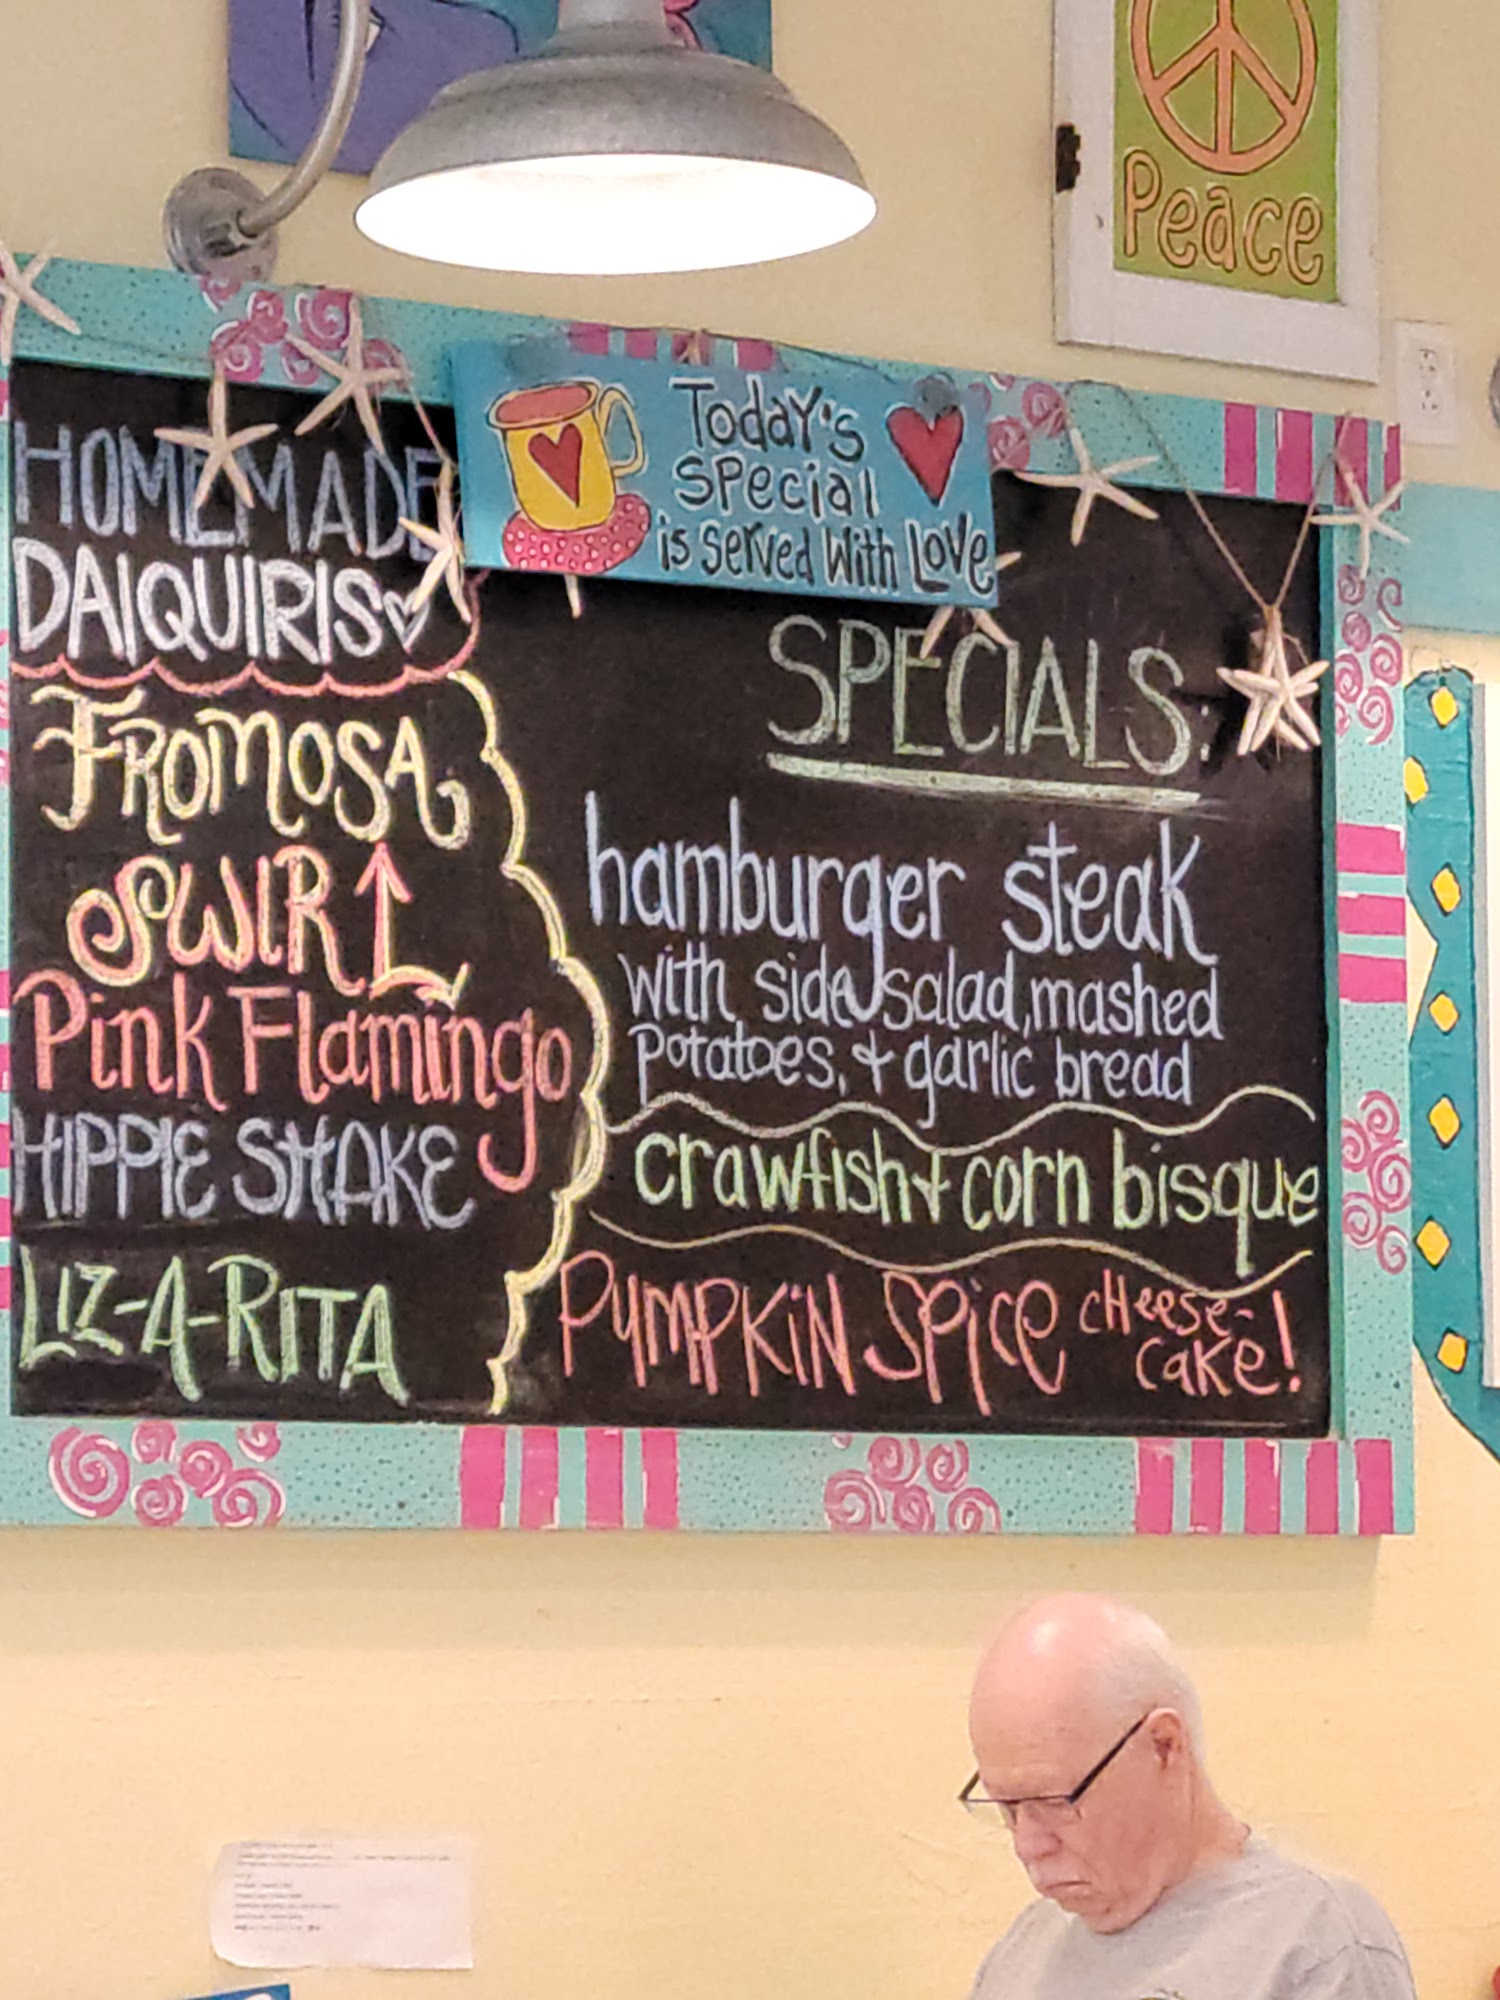 Peace
Today's
Special
is Served With Love
HOMEMADE
DAIQUIRIS
FROMOSA
SWIRL
Pink Flamingo
HIPPIE SHAKE
LIZ-A-RITA
SPECIALS:
hamburger steak
with side salad, mashed
potatoes, + garlic bread
crawfish + corn bisque
PUMPKIN SPICE CHEESE-
CAKE!